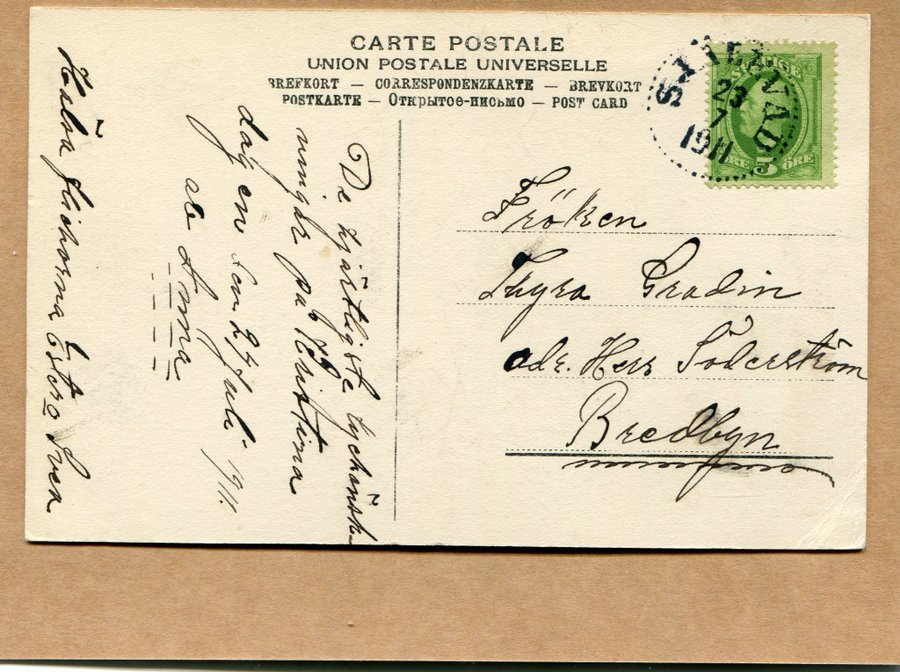 CARTE POSTALE
UNION POSTALE UNIVERSELLE
BREFKORT — CORRESPONDENZKARTE — BREVKORT
POSTKARTE — Открытое-письмо — POST CARD
SVERIGE
5
ÖRE
23
7
1911
Fröken
Thyra Gradin
adr. Herr Söderström
Bredbyn
De hjärtligste lyckönsk-
ningar på Christina
dag en den 24 Juli 1911.
av Anna
Hälsa flickorna Ester o Svea